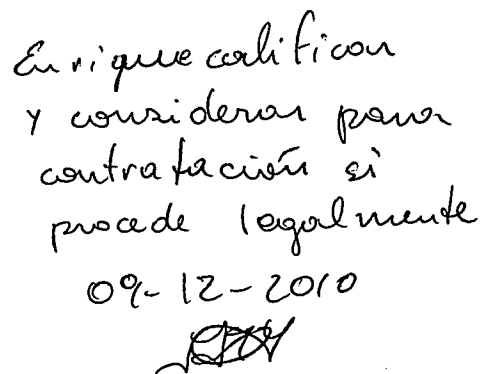 Enrique calificar
y considerar para
contratación si
procede legalmente
09-12-2010